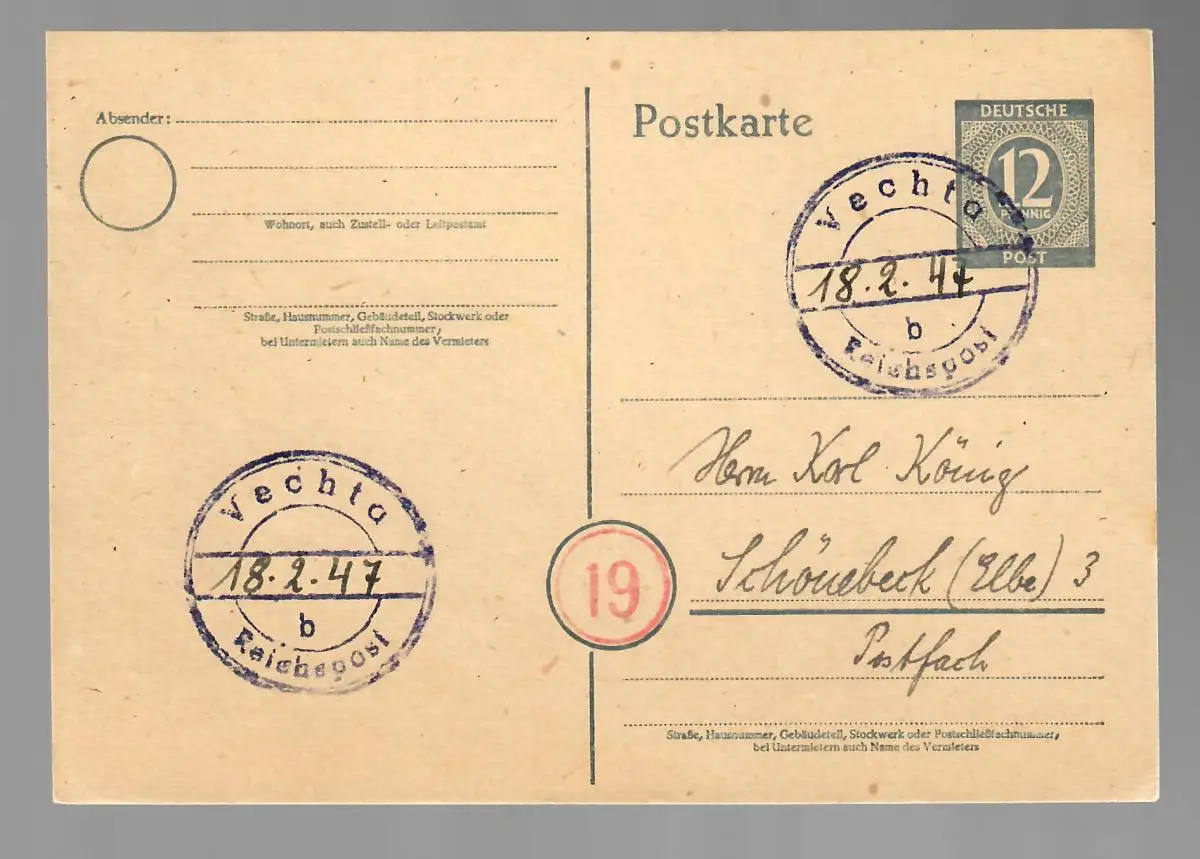 Absender:
Wohnort, auch Zustell- oder Leitpostamt
Straße, Hausnummer, Gebäudeteil, Stockwerk oder
Postschließfachnummer,
bei Untermietern auch Name des Vermieters
Vechta
18.2.47
b
Reichspost
Postkarte
DEUTSCHE
12
PFENNIG
POST
Vechta
18.2.47
b
Reichspost
Herrn Karl König
19
Schönebeck (Elbe) 3
Postfach
Straße, Hausnummer, Gebäudeteil, Stockwerk oder Postschließfachnummer,
bei Untermietern auch Name des Vermieters